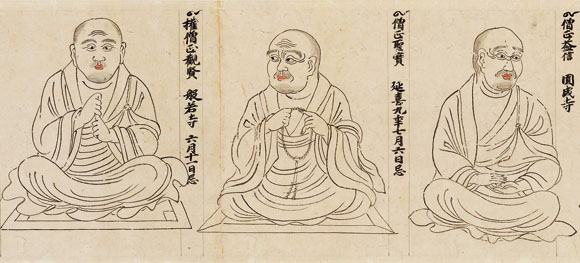 僧正益信 圓成寺
僧正聖寳 延喜九年七月六日忌
權僧正觀賢 般若寺 六月十一日忌